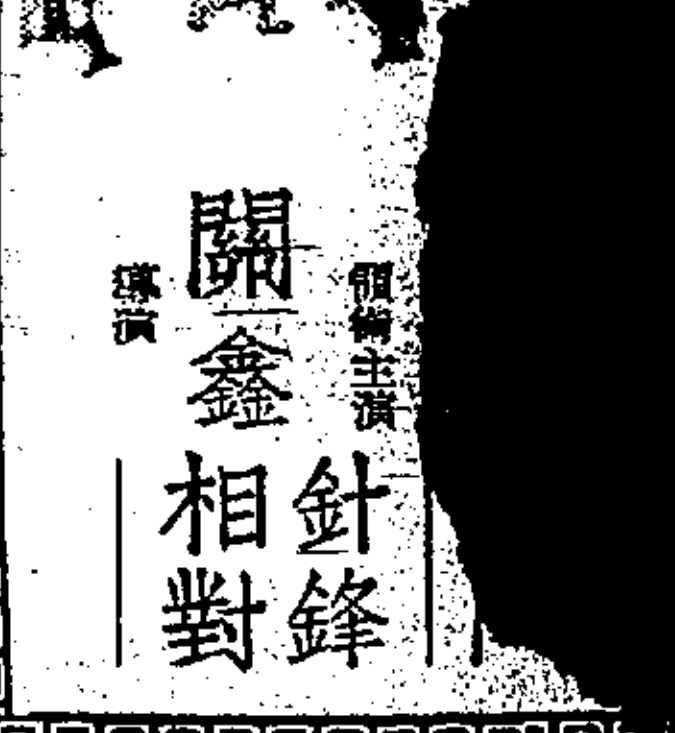 領銜主演
關鑫
導演
針鋒
相對